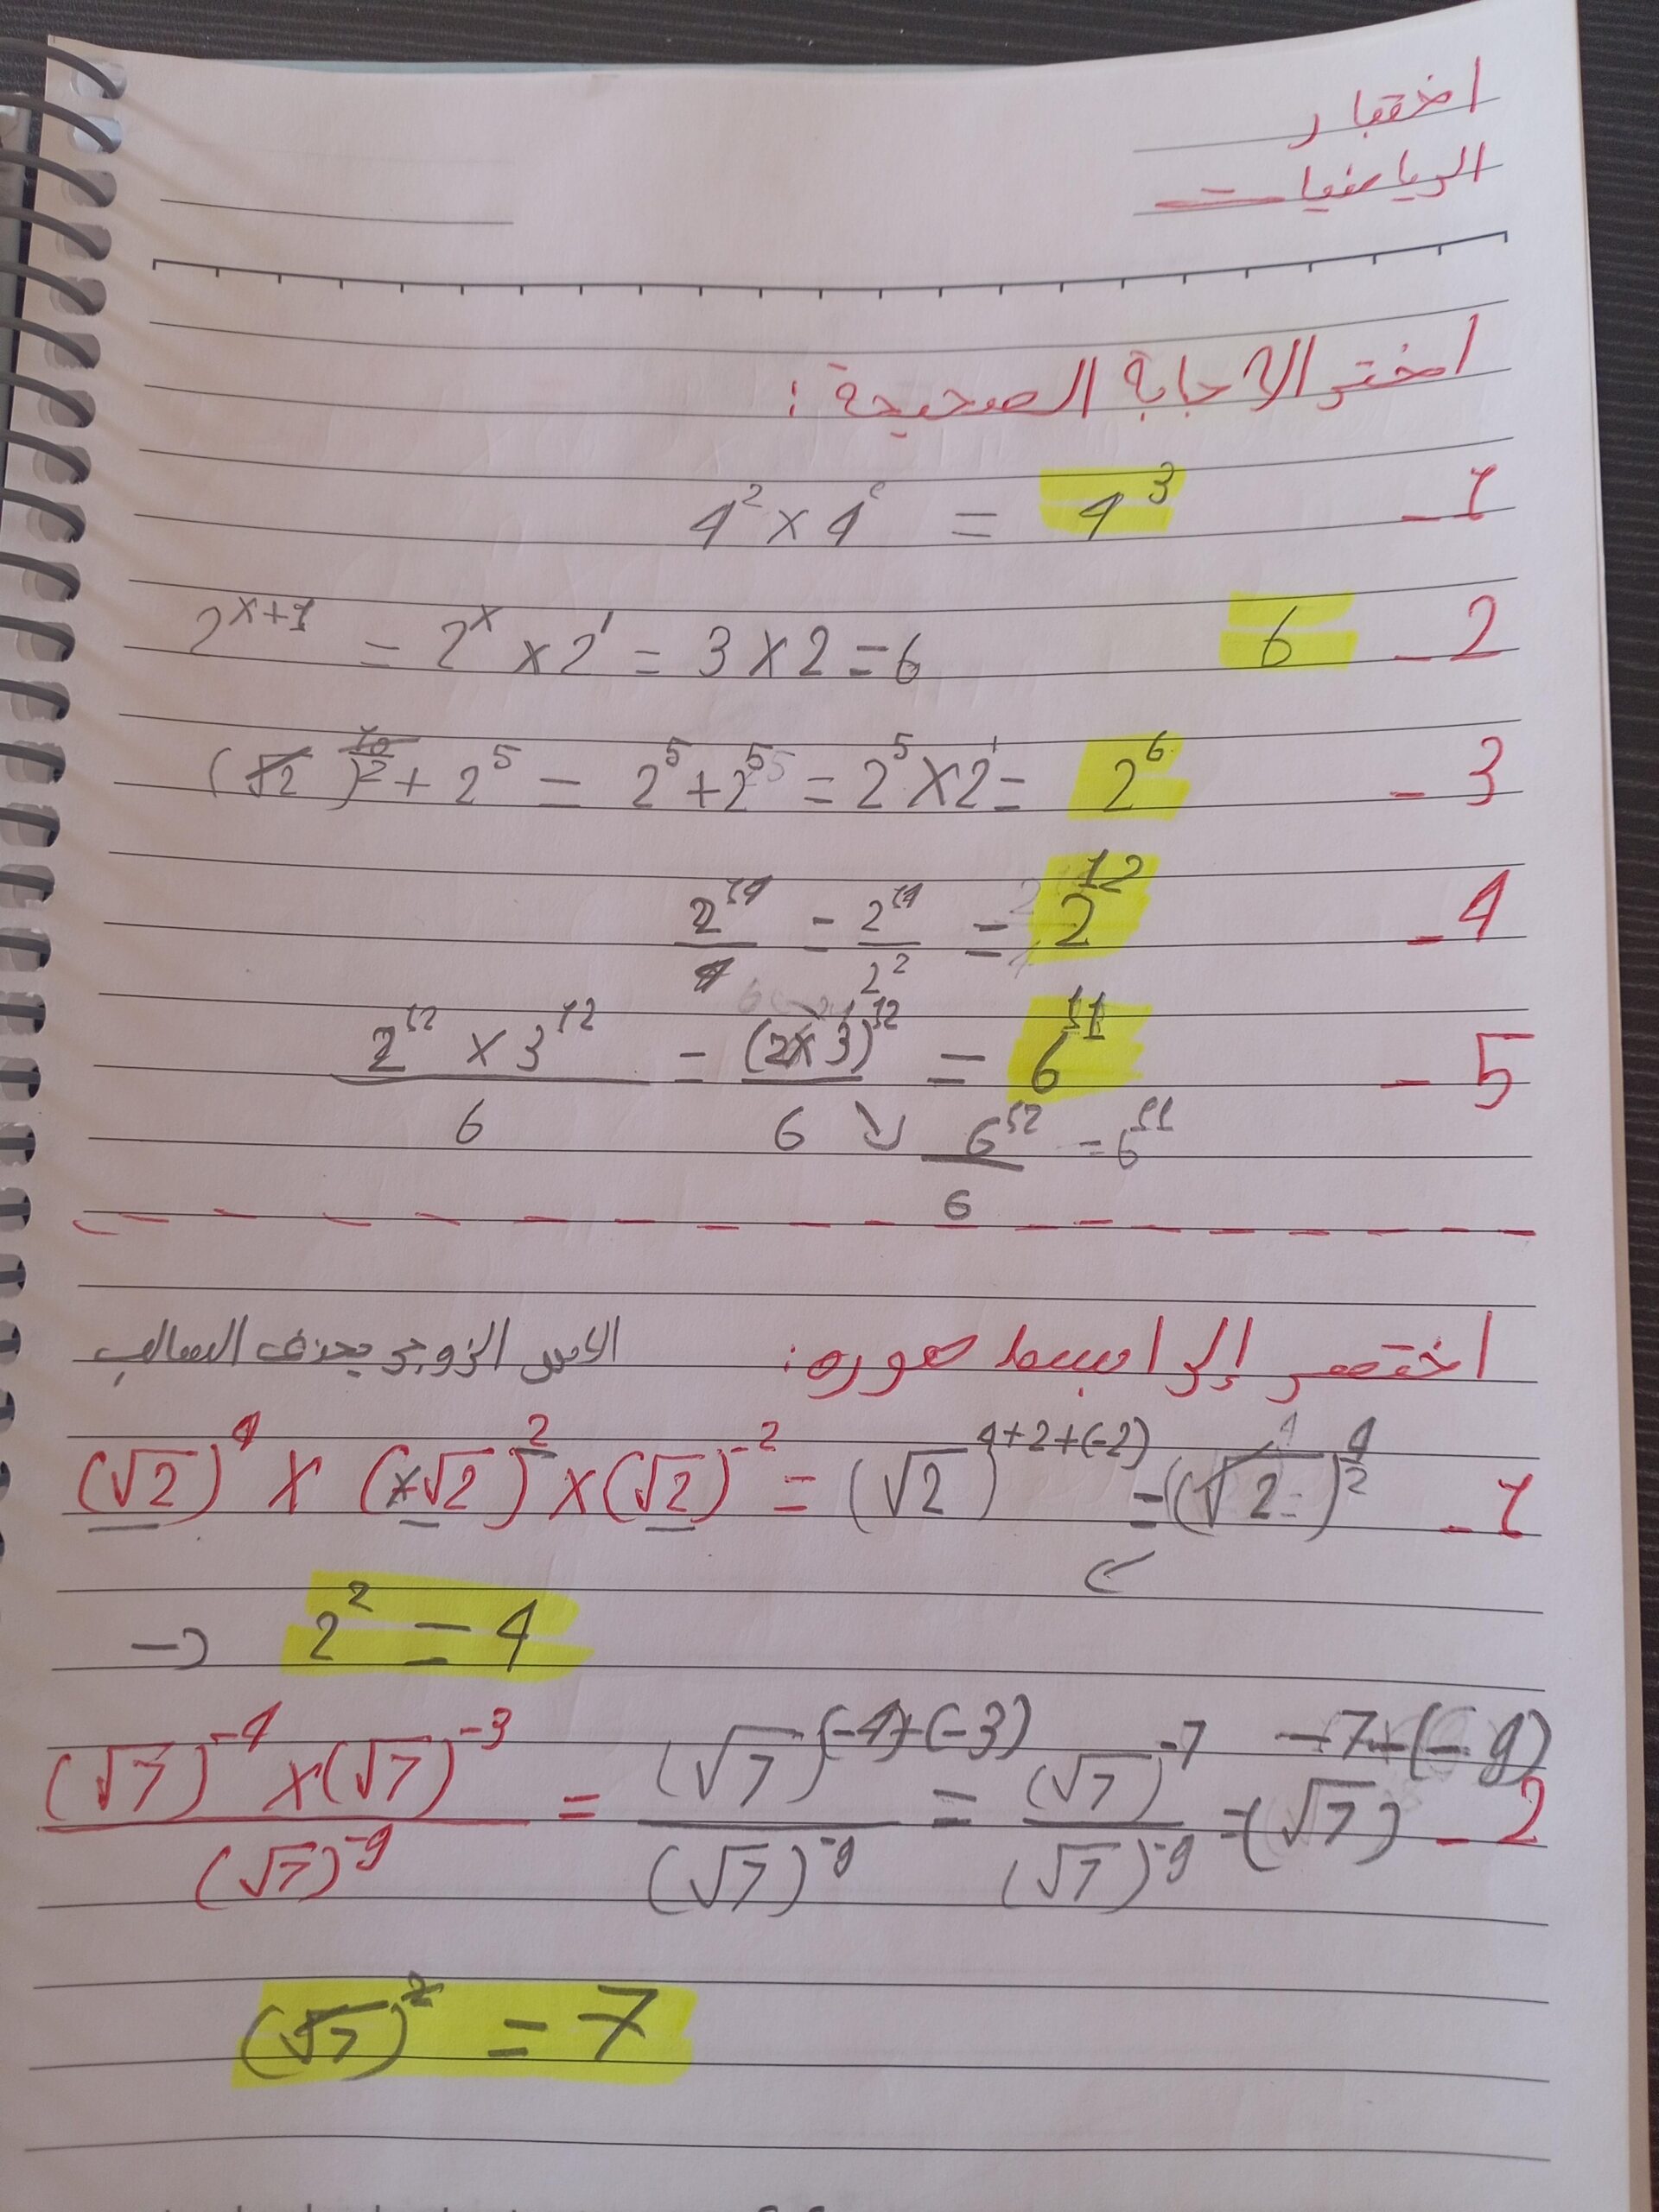 اختبار
الرياضيات
اختر الاجابة الصحيحة :
1 - 4² × 4 = 4³
2 - 6 2^(x+1) = 2^x × 2¹ = 3 × 2 = 6
3 - (√2)^(10/2) + 2⁵ = 2⁵ + 2⁵ = 2⁵ × 2¹ = 2⁶
4 - 2^14 / 4 = 2^14 / 2² = 2^12
5 - (2^12 × 3^12) / 6 = (2×3)^12 / 6 = 6^11
6^12 / 6 = 6^11
اختصر إلى ابسط صوره : الاس الزوجي يحذف السالب
1 - (√2)⁴ × (-√2)² × (√2)^-2 = (√2)^(4+2+(-2)) = (√2)^(4/2)
→ 2² = 4
2 - ((√7)^-4 × (√7)^-3) / (√7)^-9 = (√7)^((-4)+(-3)) / (√7)^-9 = (√7)^-7 / (√7)^-9 = (√7)^(-7-(-9))
(√7)² = 7